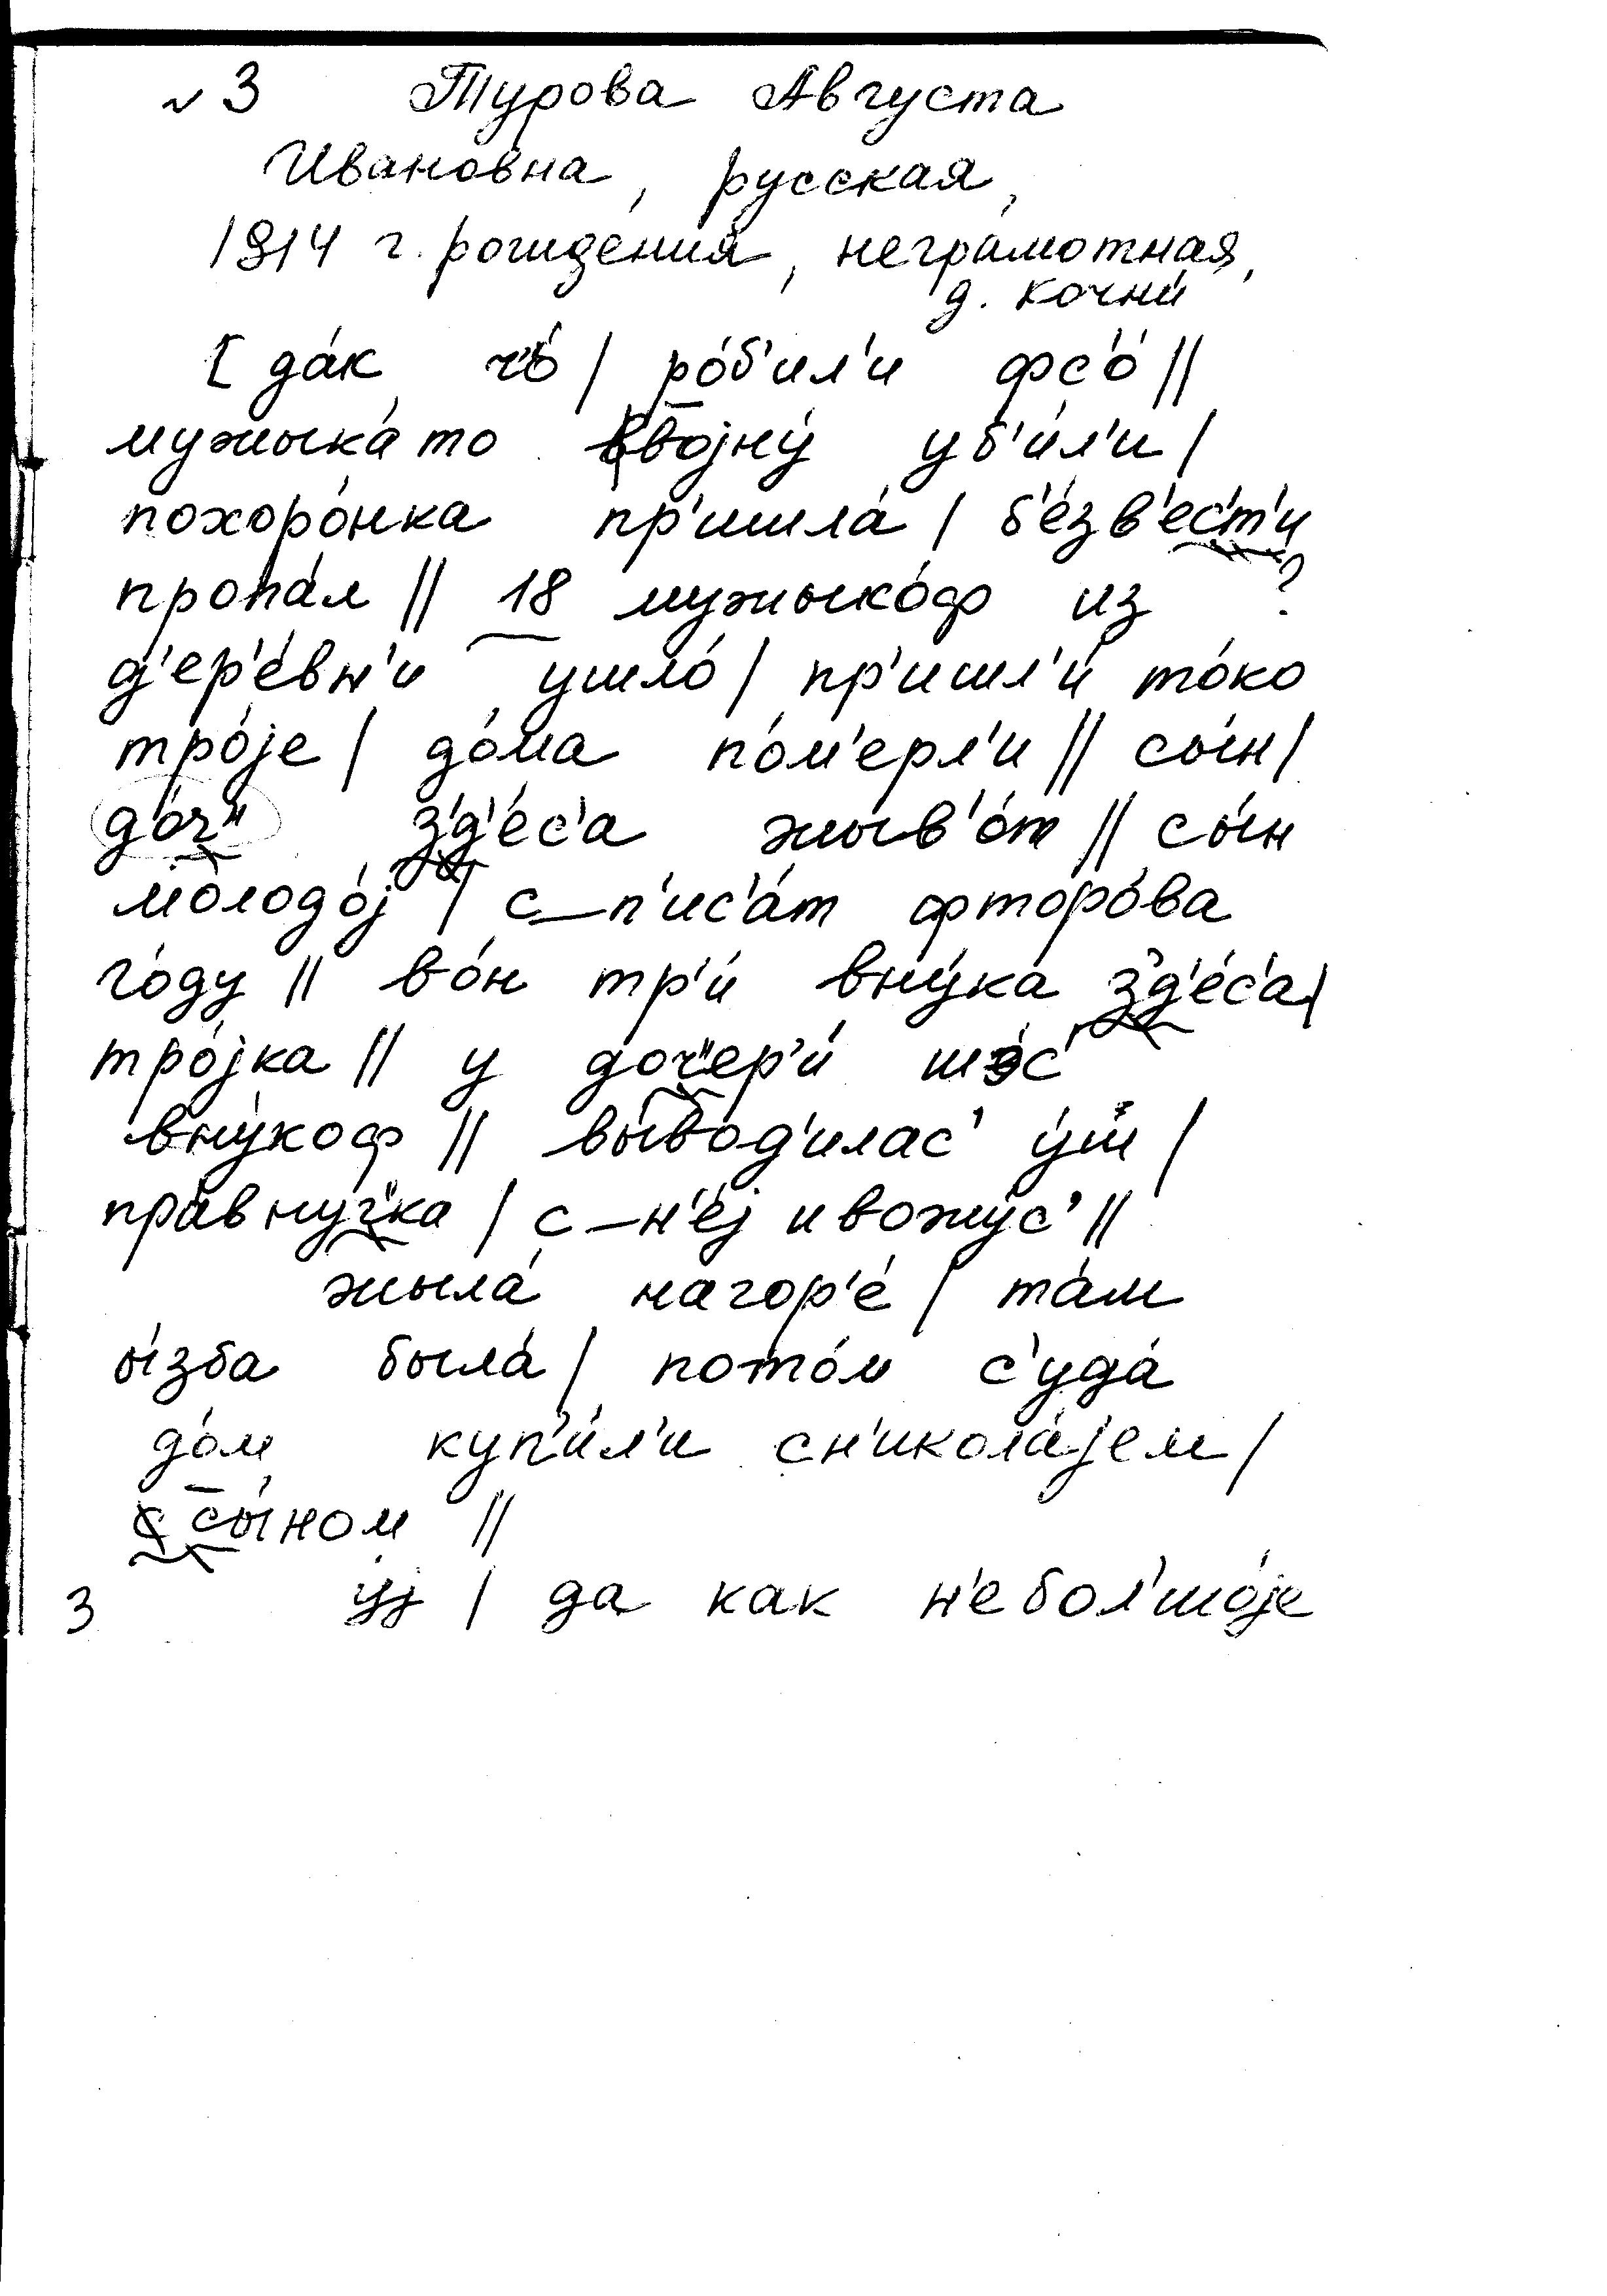 №3 Турова Августа
Ивановна, русская,
1914 г. рождения, неграмотная,
д. Кочни
[ да́к ч'о́ | ро́б'ил'и фс'о́ ||
мужыка́ то војну́ уб'и́л'и |
похоро́нка пр'ишла́ | б'е́зв'ес'т'и
пропа́л || 18 мужыко́ф из ?
д'ер'е́вн'и ушло́ | пр'ишл'и́ то́ко
тро́је | до́ма по́м'ерл'и || сы́н |
до́ч" з'д'е́с'а жыв'о́т || сы́н
молодо́ј | с_п'ис'а́т фторо́ва
го́ду || во́н тр'и́ вну́ка з'д'е́с'а |
тро́јка || у доч"ер'и́ шэ́с'
вну́коф || вы́вод'илас' у́ш |
пра́внуч"ка | с_н'е́ј и вожу́с' ||
жыла́ нагор'е́ | та́м
ы́зба была́ | пото́м с'уда́
до́м куп'и́л'и сн'икола́јем |
с сы́ном ||
у́ј | да как н'ебол'шо́је
3